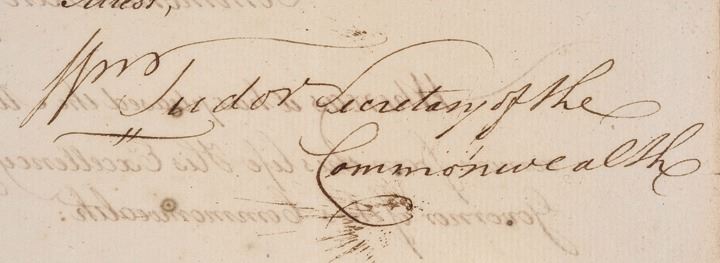 Attest,
Wm Tudor Secretary of the
Commonwealth